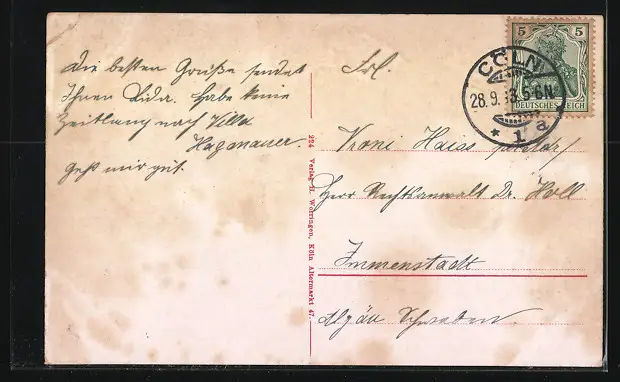 Die besten Grüße sendet
Ihnen Lida. Habe keine
Zeitlang nach Villa
Hagenauer.
Geht mir gut.
224 Verlag H. Worringen, Köln Altermarkt 47.
Frl.
Kroni Haiss
Herr Rechtsanwalt Dr. Holl
Immenstadt
Algäu Schwaben.
5 5
DEUTSCHES REICH
CÖLN
28.9.13. 5-6N
* 1 a